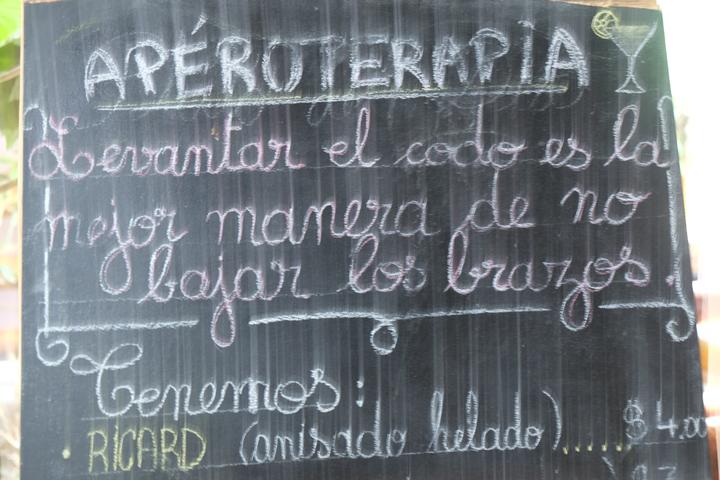 APÉROTERAPIA
Levantar el codo es la
mejor manera de no
bajar los brazos.
Tenemos:
RICARD (anisado helado)...... $ 4.00